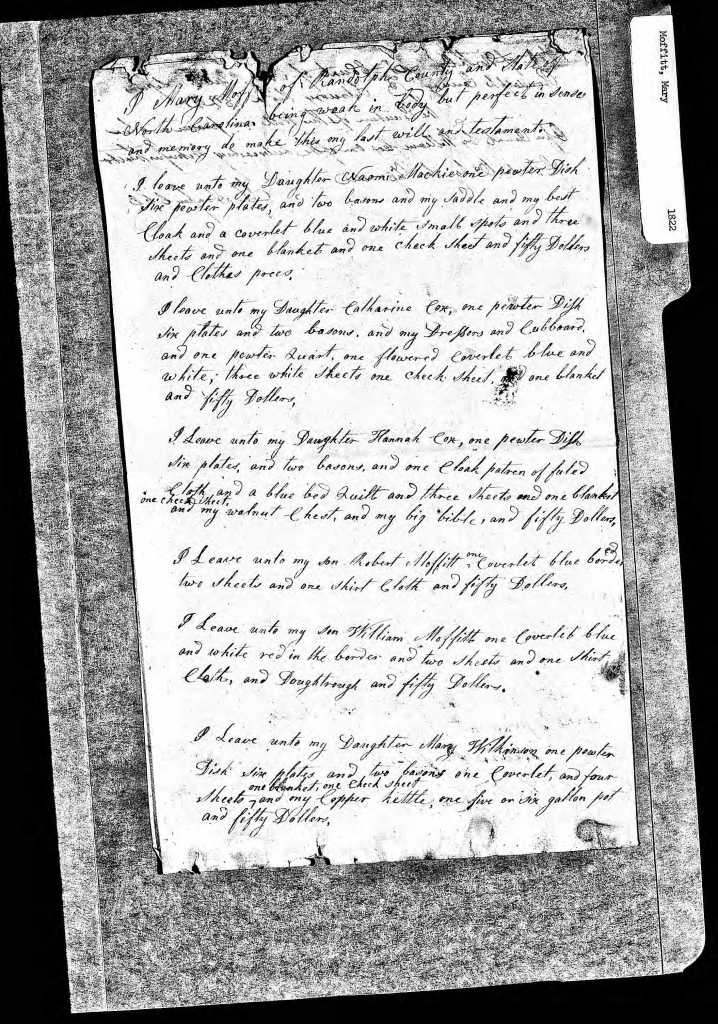 Moffitt, Mary
1822
I Mary Moff of Randolph County and State of
North Carolina. being weak in body but perfect in sense
and memory do make this my last will and testament.
I leave unto my Daughter Naomi Mackie one pewter Dish
six pewter plates, and two basons and my saddle and my best
Cloak and a coverlet blue and white small spots and three
sheets and one blanket and one check sheet and fifty Dollers
and Clothes press.
I leave unto my Daughter Catharine Cox, one pewter Dish
six plates and two basons, and my Dressors and Cubboard,
and one pewter Quart, one flowered Coverlet blue and
white, three white sheets one check sheet, and one blanket
and fifty Dollers,
I Leave unto my Daughter Hannah Cox, one pewter Dish
six plates, and two basons, and one Cloak patren of fuled
Cloth, and a blue bed Quilt and three sheets and one blanket
one check sheet
and my walnut Chest, and my big bible, and fifty Dollers,
I Leave unto my son Robert Moffitt one Coverlet blue borded
two sheets and one shirt Cloth and fifty Dollers.
I Leave unto my son William Moffitt one Coverlet blue
and white red in the border and two sheets and one shirt
Cloth, and Doughtrough and fifty Dollers.
I Leave unto my Daughter Mary Wilkinson one pewter
Dish six plates and two basons one Coverlet, and four
one blanket, one check sheet
sheets, and my Copper kettle, one five or six gallon pot
and fifty Dollers,